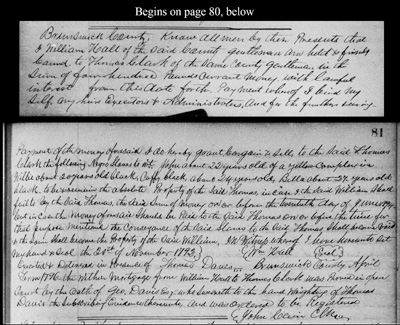 Begins on page 80, below
Brunswick County, Know all men by these Presents that
I William Hall of the said County gentleman am held & firmly
bound to Thomas Clark of the same County gentleman in the
Sum of four hundred Pounds Current Money with Lawful
interest from this date for the Payment whereof I bind my
self my heirs Executors & Administrators, And for the further
81
Payment of the money aforesaid I do hereby grant bargain & sell to the Said Thomas
Clark the following Negro Slaves to wit, John about 22 years old of a yellow Complexion
Willie about 20 years old black, Cuffy black about 24 years old, Bella about 27 years old
black, to be remain the absolute Property of the Said Thomas, in case I the Said William Shall
fail to Pay the Said Thomas, the said Sum of money on or before the twentieth day of June
but in case the money aforesaid Should be Paid to the Said Thomas on or before the time for
that purpose mentioned the Conveyance of the Said Slaves to the Said Thomas Shall become void
& the Same Shall become the Property of the Said William, In Witness whereof I have hereunto set
my hand & seal the 20th of November 1773,
Wm Hall (Seal)
Executed & Delivered in Presence of Thomas Davis Brunswick County April
Term the within Mortgage from William Hall to Thomas Clark was Proved in open
Court by the Oath of Geo. Davis Esq. who sweareth to the hand Writing of Thomas
Davis the Subscribing Evidence thereunto And was ordered to be Registered